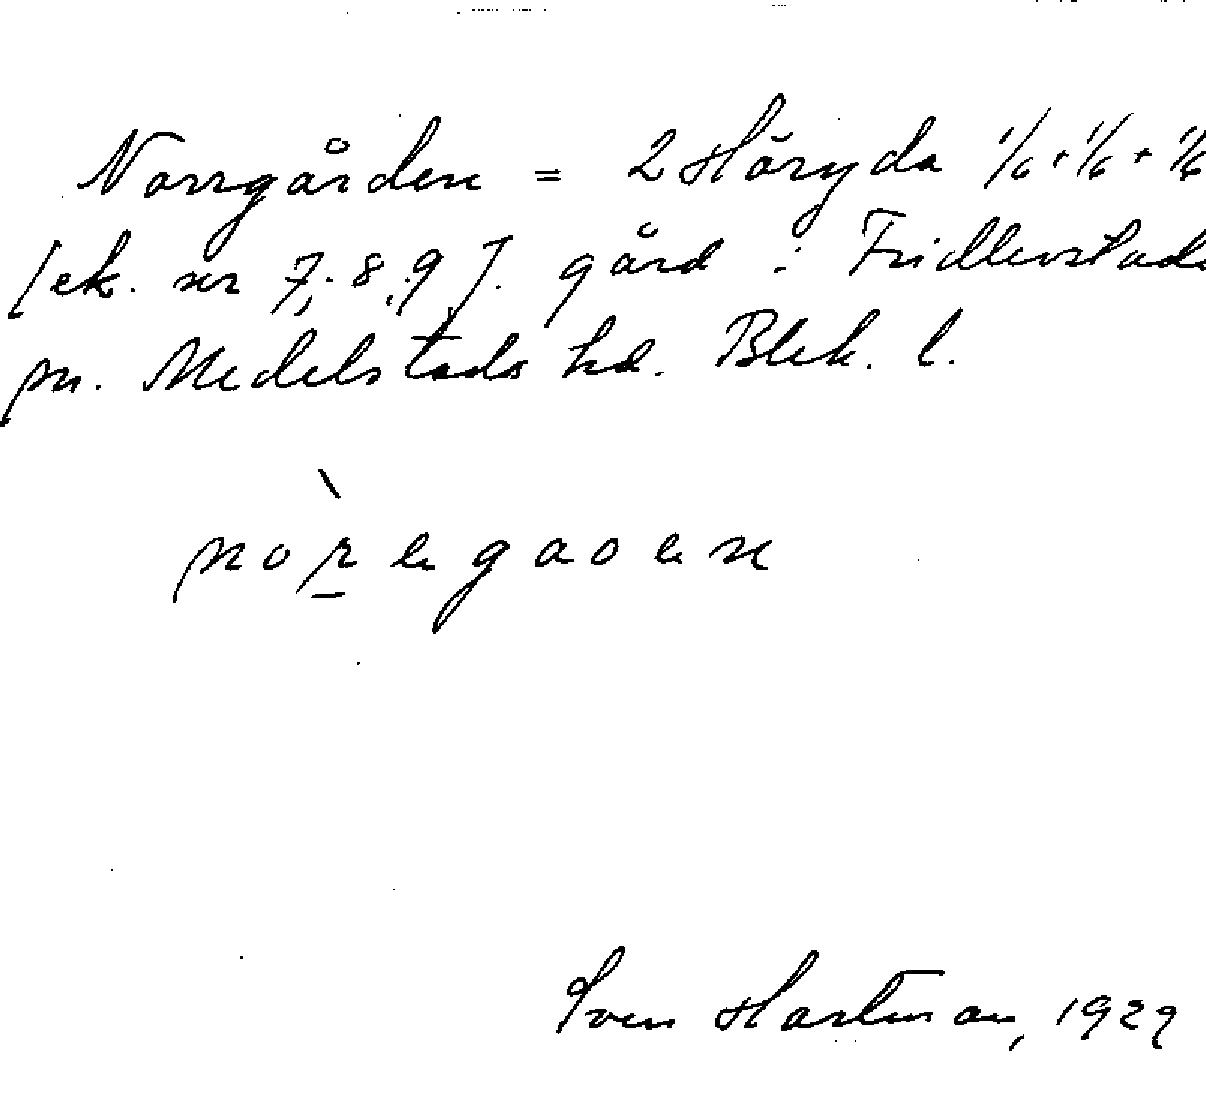 Norrgården = 2 Höryda 1/6 + 1/6 + 1/6
[ek. nr 7, 8, 9]. gård i Fridlevstads
sn. Medelstads hd. Blek. l.
noregaoen
Sven Hartman, 1929